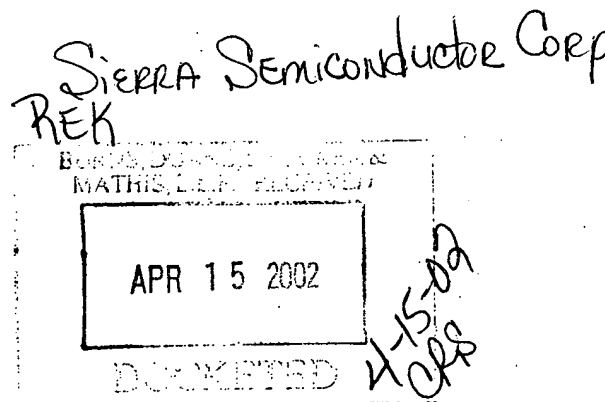 SiERRA SEmiconductor CORP
REK
MATHIS, L.L.P. RECEIVED
APR 15 2002
DOCKETED
4-15-02
CRS